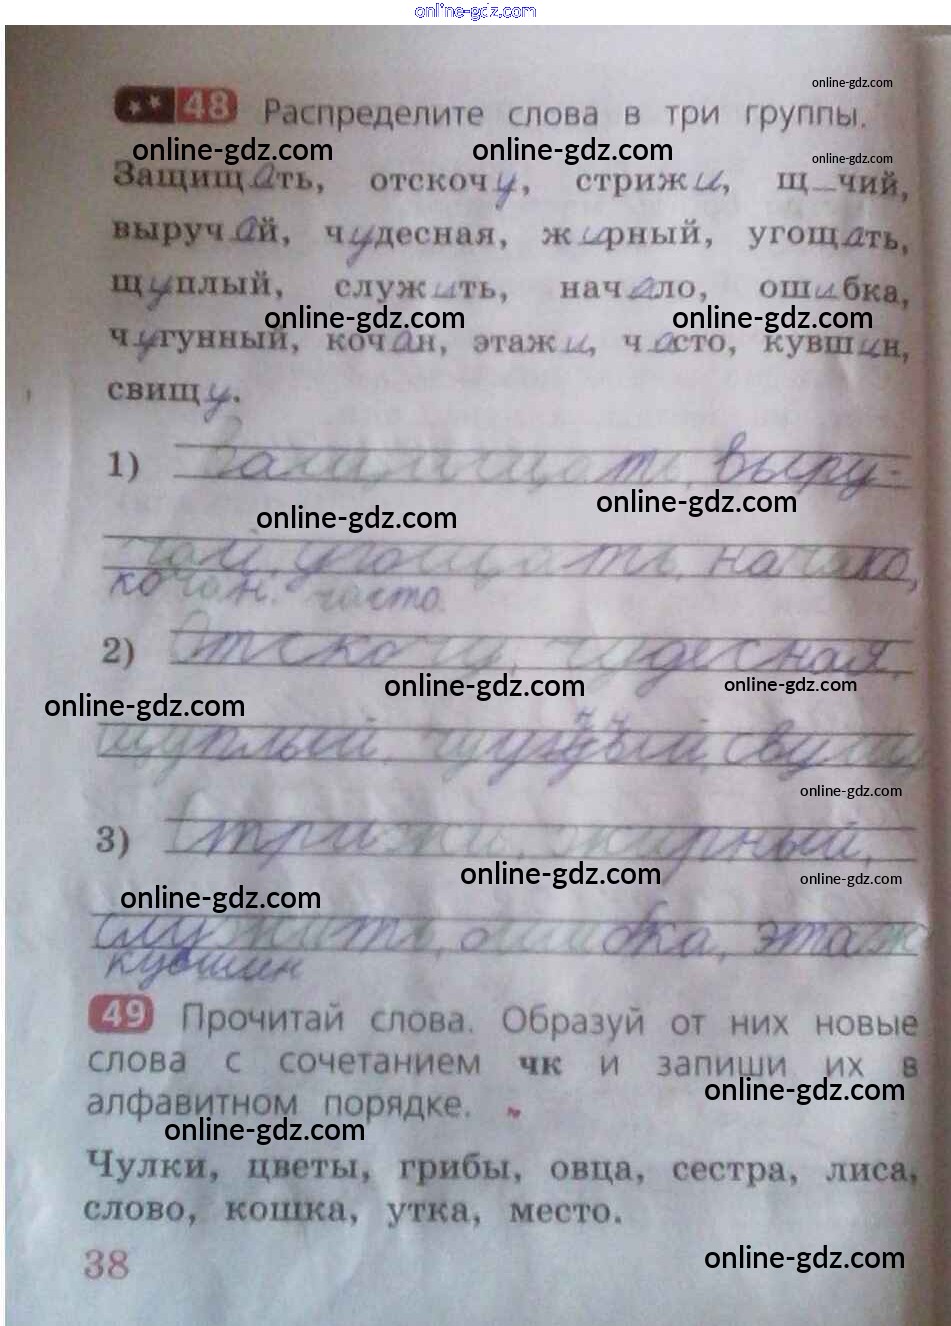 online-gdz.com
online-gdz.com
48 Распределите слова в три группы.
online-gdz.com online-gdz.com online-gdz.com
Защищать, отскочу, стрижи, щ_чий,
выручай, чудесная, жирный, угощать,
щуплый, служить, начало, ошибка,
online-gdz.com online-gdz.com
чугунный, кочан, этажи, часто, кувшин,
свищу.
1) Защищать, выру-
online-gdz.com online-gdz.com
чай, угощать, начало,
кочан. часто.
2) Отскочу, чудесная,
online-gdz.com online-gdz.com online-gdz.com
щуплый,
online-gdz.com
3) Стрижи, жирный,
online-gdz.com online-gdz.com
online-gdz.com
служить, ошибка, этаж
кувшин
49 Прочитай слова. Образуй от них новые
слова с сочетанием чк и запиши их в
online-gdz.com
алфавитном порядке.
online-gdz.com
Чулки, цветы, грибы, овца, сестра, лиса,
слово, кошка, утка, место.
38
online-gdz.com